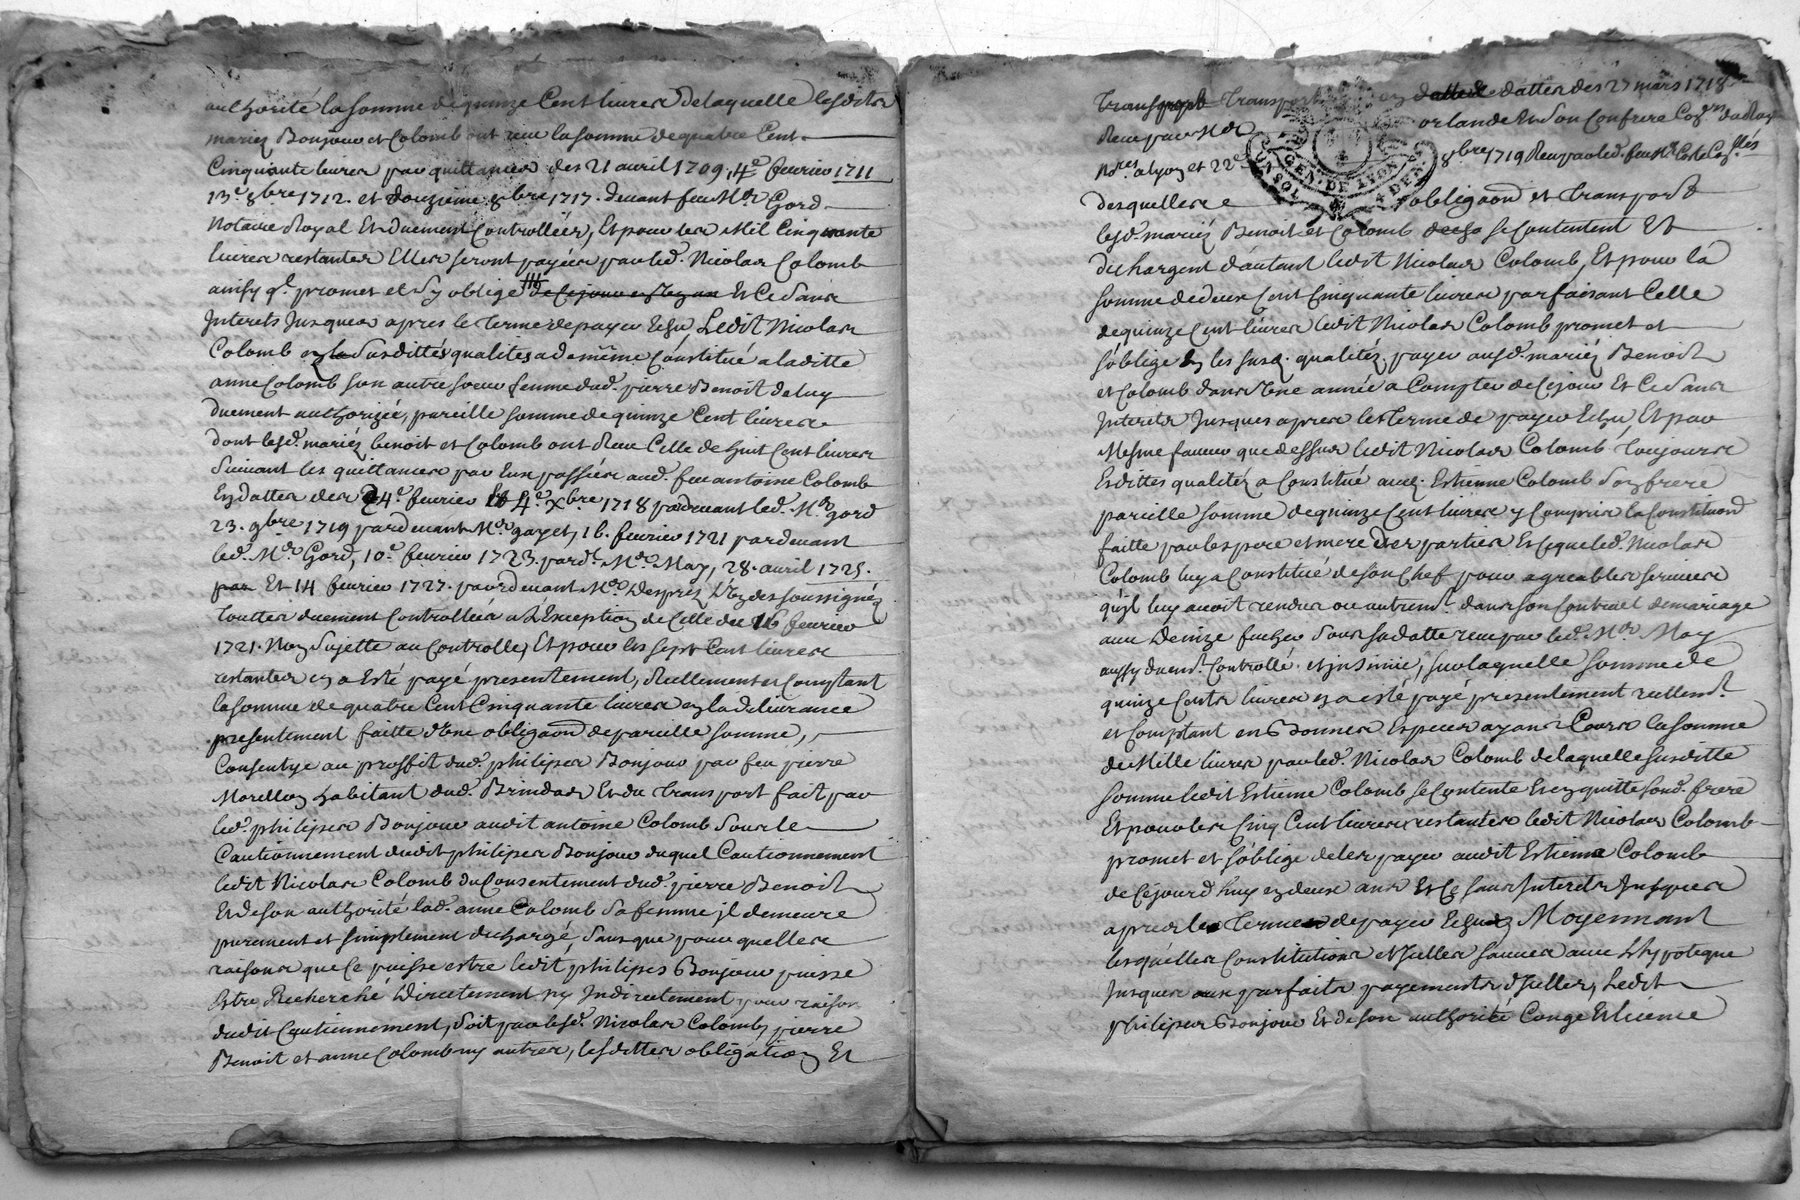 authorité la somme de quinze Cent livres de laquelle lesdits
mariez Bonjour et Colomb ont reçu la somme de quatre Cent
Cinquante livres par quittances des 21 avril 1709, 4e fevrier 1711
13e 8bre 1712. et douzieme 8bre 1717. devant feu Me Gord
Notaire Royal Et duement Controllées, Et pour les Mil Cinquante
livres restantes Elles seront payées par led. Nicolas Colomb
ainsy ql. promet et s'y oblige Et Ce Sans
Interets Jusques apres le terme de payer Echu, Ledit Nicolas
Colomb Susdittes qualites a de même Constitué a laditte
anne Colomb son autre soeur femme dud. pierre Benoist de luy
Duement authorizée, pareille somme de quinze Cent livres
dont lesd. mariéz benoit et Colomb ont Reçu Celle de huit Cent livres
Suivant les quittances par Eux passées aud. feu antoine Colomb
En dattes des 24e fevrier Et 4e Xbre 1718 pardevant led. Me gord
23. 9bre 1719 pardevant Me gayet, 16. fevrier 1721 pardevant
led. Me Gord, 10e fevrier 1723. pard. Me May, 28. avril 1725.
Et 14 fevrier 1727. pardevant Me Desprez L'un des soussignés
touttes duement Controllées a L'Exception de Celle du 16 fevrier
1721. Non Sujette au Controlle, Et pour les sept Cent livres
restantes en a Esté payé presentement, Reellement et Comptant
la somme de quatre Cent Cinquante livres en la delivrance
presentement faitte d'Une obligaon de pareille somme,
Consentye au proffit dud. philipes Bonjour par feu pierre
Morellon habitant dud. Brindas Et du transport fait par
led. philipes Bonjour audit antoine Colomb Sous le
Cautionnement dudit philipes Bonjour duquel Cautionnement
ledit Nicolas Colomb du Consentement dud. pierre Benoist
Et de son authorité lad. anne Colomb Sa femme jl demeure
purement et simplement dechargé, Sans que pour quelles
raisons que Ce puisse estre ledit philipes Bonjour puisse
Estre Recherché Directement ny Indirectement pour raison
dudit Cautionnement, Soit par lesd. Nicolas Colomb, pierre
Benoit et anne Colomb ny autres, lesdittes obligation Et
Transport en dattes des 27 mars 1718
Reçu par Me orlande Et Son Confrere
Nores a Lyon et 22e 8bre 1719 Reçu par led. feu Me
desquelles obligaon et Transport
lesd. mariéz Benoit et Colomb se Contentent Et
dechargent d'autant ledit Nicolas Colomb, Et pour la
somme de deux Cent Cinquante livres parfaisant Celle
de quinze Cent livres ledit Nicolas Colomb promet et
s'oblige En les susd. qualitéz payer ausd. mariéz Benoist
et Colomb dans Une année a Compter de Ce jour Et Ce Sans
Interets Jusques apres le terme de payer Echu, Et par
Mesme faveur que dessus ledit Nicolas Colomb toujours
Esdittes qualitéz a Constitué aud. Estienne Colomb Son frere
pareille somme de quinze Cent livres y Compris la Constituaon
faitte par les pere et mere des parties Et Ce que led. Nicolas
Colomb luy a Constitué de son Chef pour agreables services
qu'jl luy avoit rendus ou autremt. dans son Contract de mariage
avec Denize Sous sa datte reçu par led. Me May
aussy duemt. Controllé et jnsinué, sur laquelle somme de
quinze Cents livres en a esté payé presentement reellemt.
et Comptant en Bonnes Especes ayant Cours la somme
de Mille livres par led. Nicolas Colomb de laquelle susditte
somme ledit Estienne Colomb se Contente Et en quitte sond. frere
Et pour les Cinq Cent livres restantes ledit Nicolas Colomb
promet et s'oblige de les payer audit Estienne Colomb
de Cejourd'huy en deux ans Et Ce sans Interets Jusques
apres le Terme de payer Echu Moyennant
lesquelles Constitutions Et Sauves avec L'hypoteque
Jusques aux parfaits payements d'Jcelles, Ledit
philipes Bonjour Et de son authorité Conge